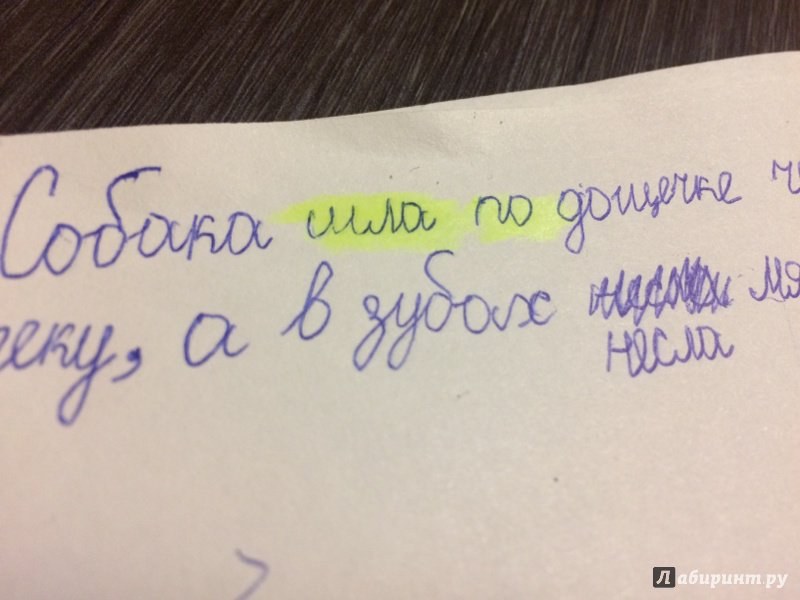 Собака шла по дощечке ч
чеку, а в зубах мя
несла
Лабиринт.ру